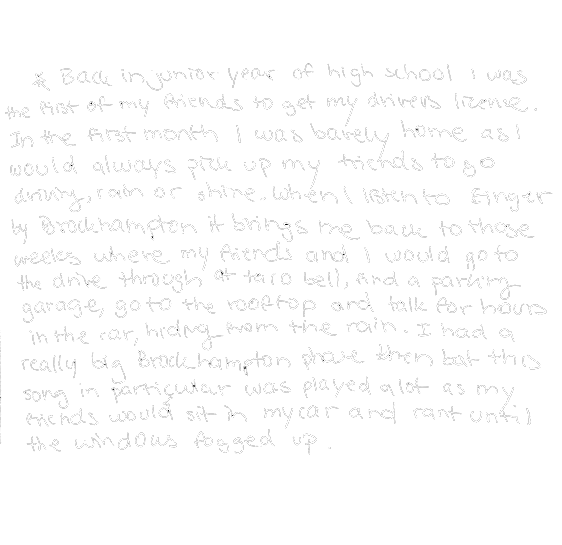 * Back in junior year of high school i was
the first of my friends to get my drivers license.
In the first month i was barely home as I
would always pick up my friends to go
driving, rain or shine. When I listen to Finger
by Brockhampton it brings me back to those
weeks where my friends and I would go to
the drive through at taco bell, find a parking
garage, go to the rooftop and talk for hours
in the car, hiding from the rain. I had a
really big Brockhampton phase then but this
song in particular was played alot as my
friends would sit in my car and rant until
the windows fogged up.